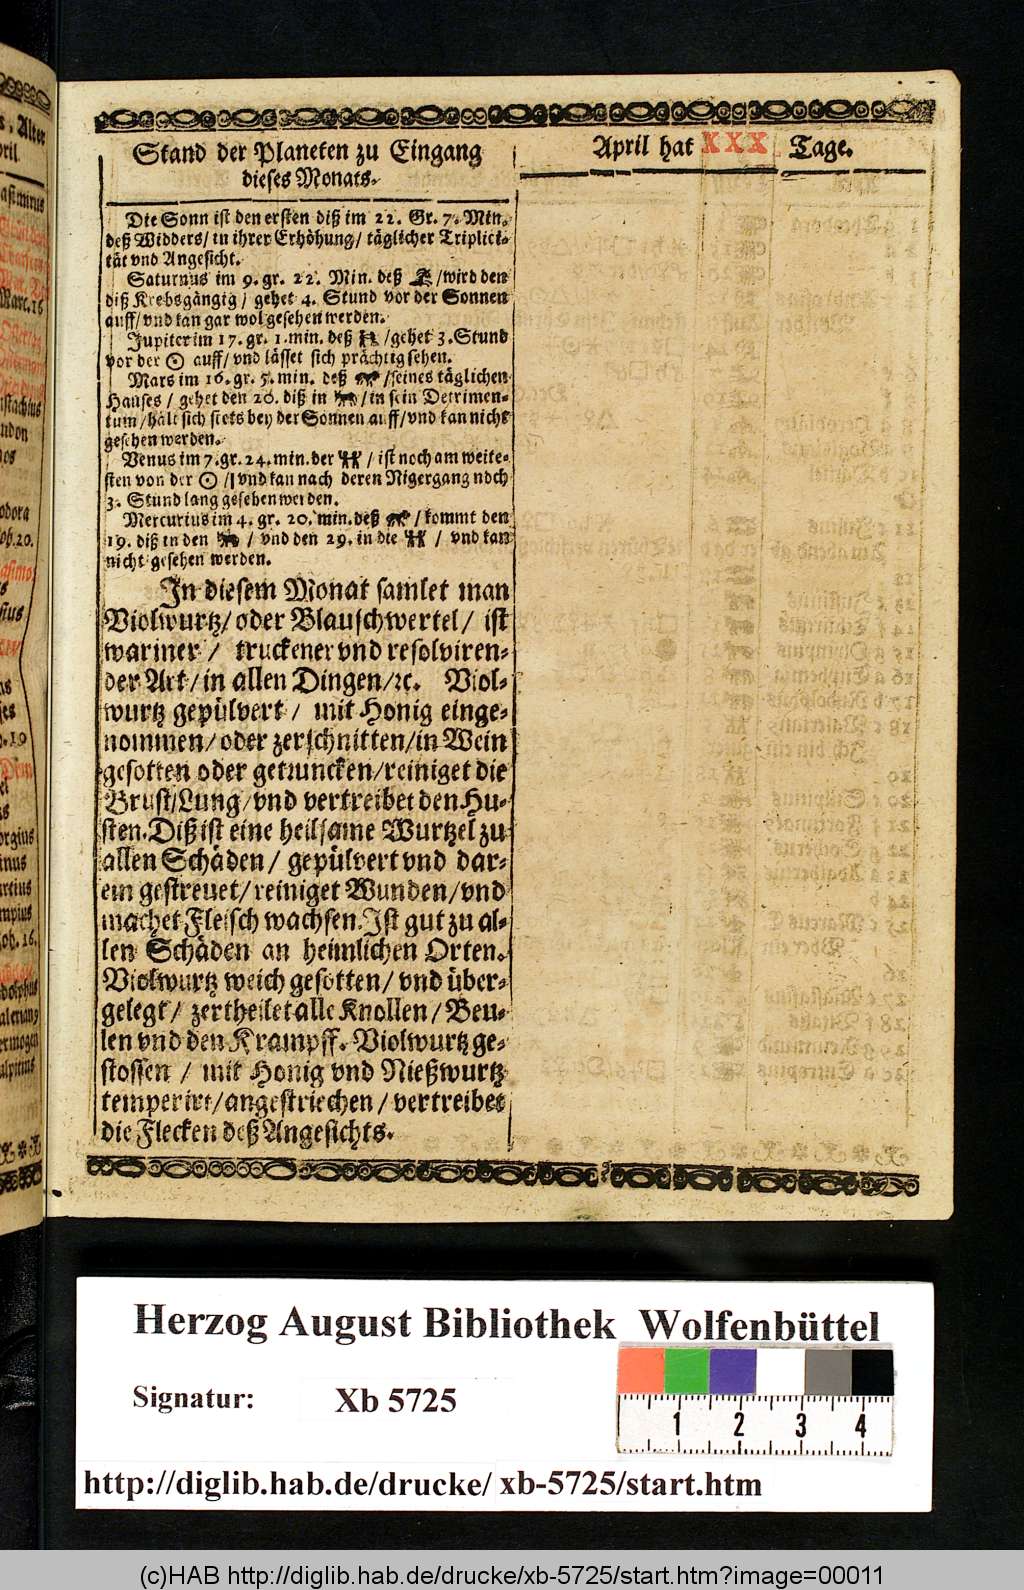 Stand der Planeten zu Eingang
dieses Monats.
Die Sonn ist den ersten diß im 22. Gr. 7. Min.
deß Widders/ in ihrer Erhöhung/ täglicher Triplici-
tät vnd Angesicht.
Saturnus im 9. gr. 22. Min. deß ♐ /wird den
diß Krebsgängig / gehet 4. Stund vor der Sonnen
auff/ vnd kan gar wol gesehen werden.
Jupiter im 17. gr. 1. min. deß /gehet 3. Stund
vor der ☉ auff/ vnd lässet sich prächtig sehen.
Mars im 16. gr. 5. min. deß /seines täglichen
Hauses / gehet den 26. diß in /in sein Detrimen-
tum/hält sich stets bey der Sonnen auff/vnd kan nicht
gesehen werden.
Venus im 7. gr. 24. min. der ♊ / ist noch am weite-
sten von der ☉ / vnd kan nach deren Nigergang noch
3. Stund lang gesehen werden.
Mercurius im 4. gr. 20. min. deß /kommt den
19. diß in den / vnd den 29. in die ♊ / vnd kan
nicht gesehen werden.
In diesem Monat samlet man
Violwurtz/ oder Blauschwertel/ ist
warmer / truckener vnd resolviren-
der Art/ in allen Dingen/ꝛc. Viol-
wurtz gepülvert / mit Honig einge-
nommen/ oder zerschnitten/in Wein
gesotten oder getruncken/reiniget die
Brust/Lung/vnd vertreibet den Hu-
sten. Diß ist eine heilsame Wurtzel zu
allen Schäden/ gepülvert vnd dar-
ein gestreuet/reiniget Wunden/vnd
machet Fleisch wachsen. Ist gut zu al-
len Schäden an heimlichen Orten.
Violwurtz weich gesotten/ vnd über-
gelegt/ zertheilet alle Knollen/ Beu-
len vnd den Krampff. Violwurtz ge-
stossen / mit Honig vnd Nießwurtz
temperirt/angestriechen/vertreibet
die Flecken deß Angesichts.
April hat XXX. Tage.
Herzog August Bibliothek Wolfenbüttel
Signatur: Xb 5725
1 2 3 4
http://diglib.hab.de/drucke/ xb-5725/start.htm
(c)HAB http://diglib.hab.de/drucke/xb-5725/start.htm?image=00011